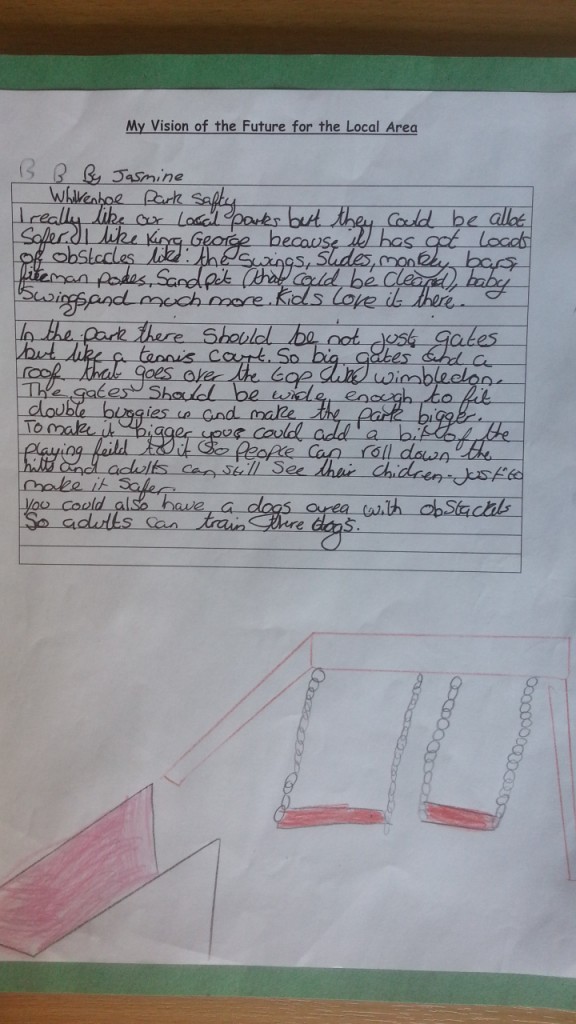 My Vision of the Future for the Local Area
B B By Jasmine
Whivenhoe Park Safty
I really like our Local parks but they Could be allot
Safer. I like King George because it has got Loads
of obstacles like: the Swings, Slides, monkey bars,
fireman poles, Sandpit (that could be cleand), baby
Swings and much more. Kids Love it there.
In the park there Should be not just gates
but like a tennis court. So big gates and a
roof that goes over the top like wimbledon.
The gates Should be wide enough to fit
double buggies and make the park bigger.
To make it bigger you could add a bit of the
playing feild to it So People can roll down the
hill and adults can still See their chidren. Just to
make it Safer.
You could also have a dogs area with obstackls
So adults can train there dogs.